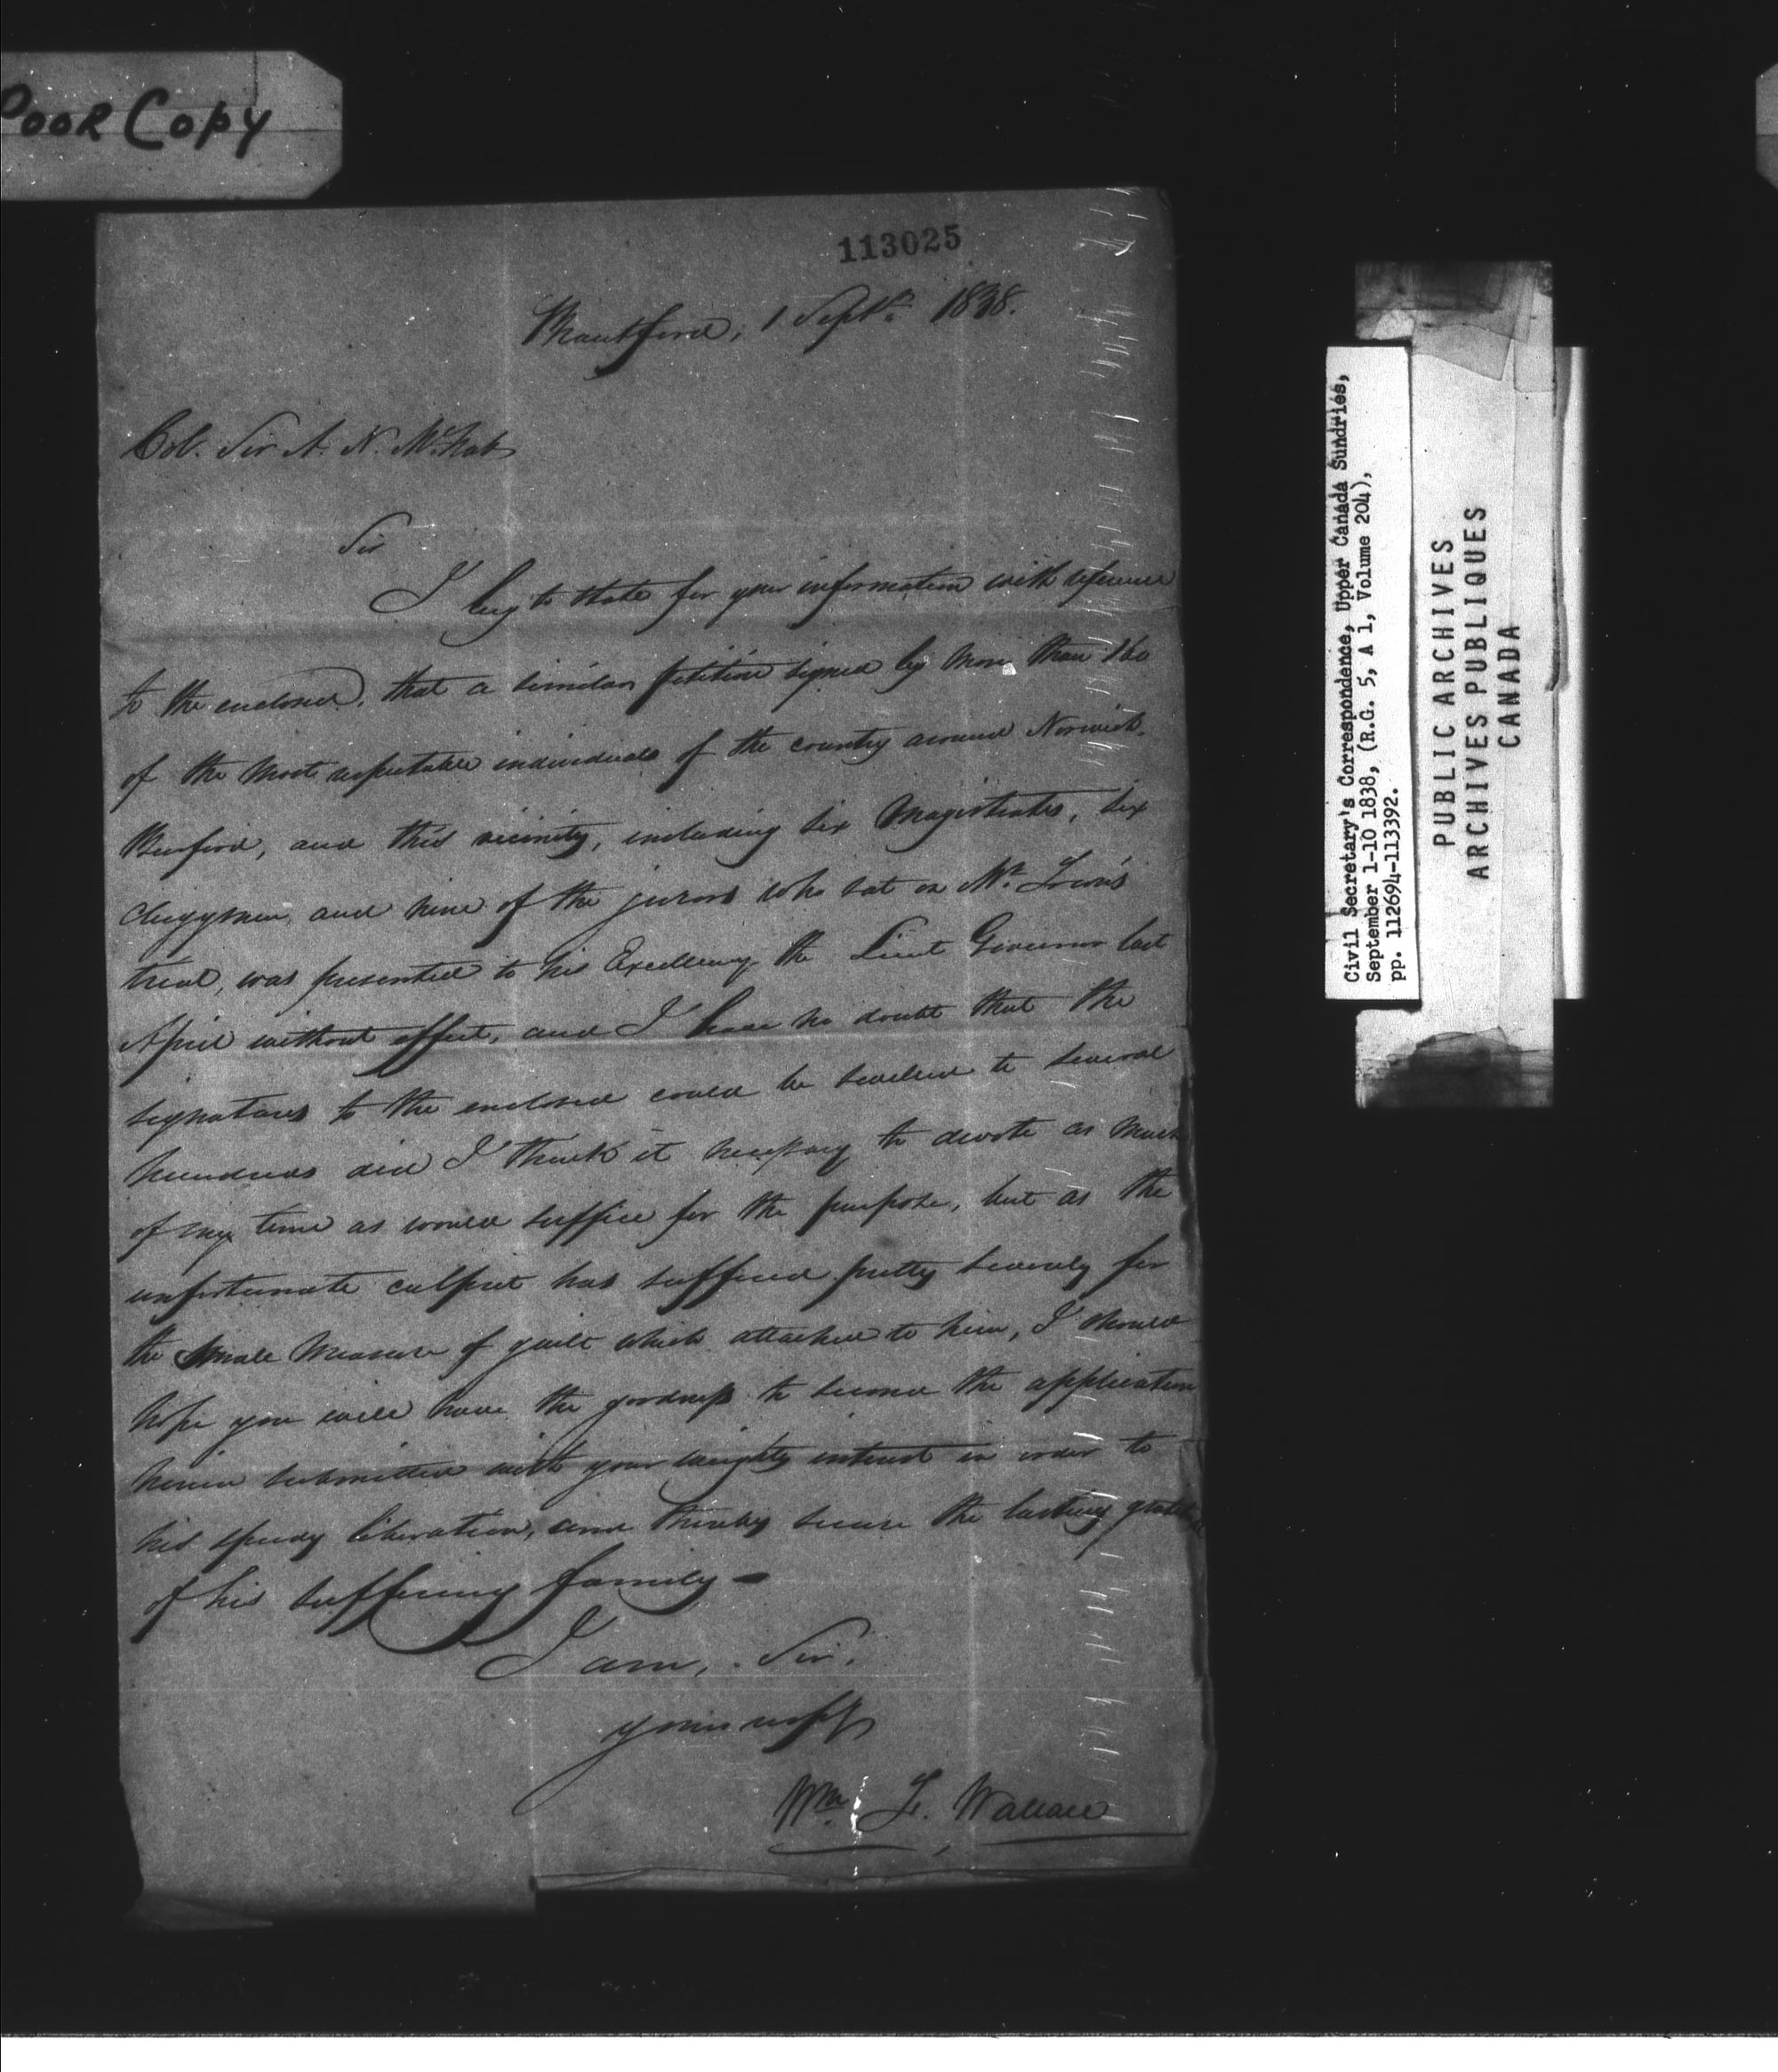 POOR COPY
113025
Brantford, 1 Septr. 1838.
Col. Sir A. N. McNab
Sir
I beg to state for your information with reference
to the enclosed, that a similar petition signed by more than 160
of the most respectable individuals of the country around Norwich,
Burford, and this vicinity, including six Magistrates, six
clergymen, and nine of the jurors who sat on Mr.
trial, was presented to his Excellency the Lieut Governor last
April without effect, and I have no doubt that the
signatures to the enclosed could be swelled to several
hundreds did I think it necessary to devote as much
of my time as would suffice for the purpose, but as the
unfortunate culprit has suffered pretty severely for
the small measure of guilt which attached to him, I should
hope you will have the goodness to second the application
herein submitted with your weighty interest in order to
his speedy liberation, and thereby secure the lasting
of his suffering family —
I am, Sir,
yours respy
Wm. L. Wallace
Civil Secretary's Correspondence, Upper Canada Sundries,
September 1-10 1838, (R.G. 5, A 1, Volume 204),
pp. 112694-113392.
PUBLIC ARCHIVES
ARCHIVES PUBLIQUES
CANADA